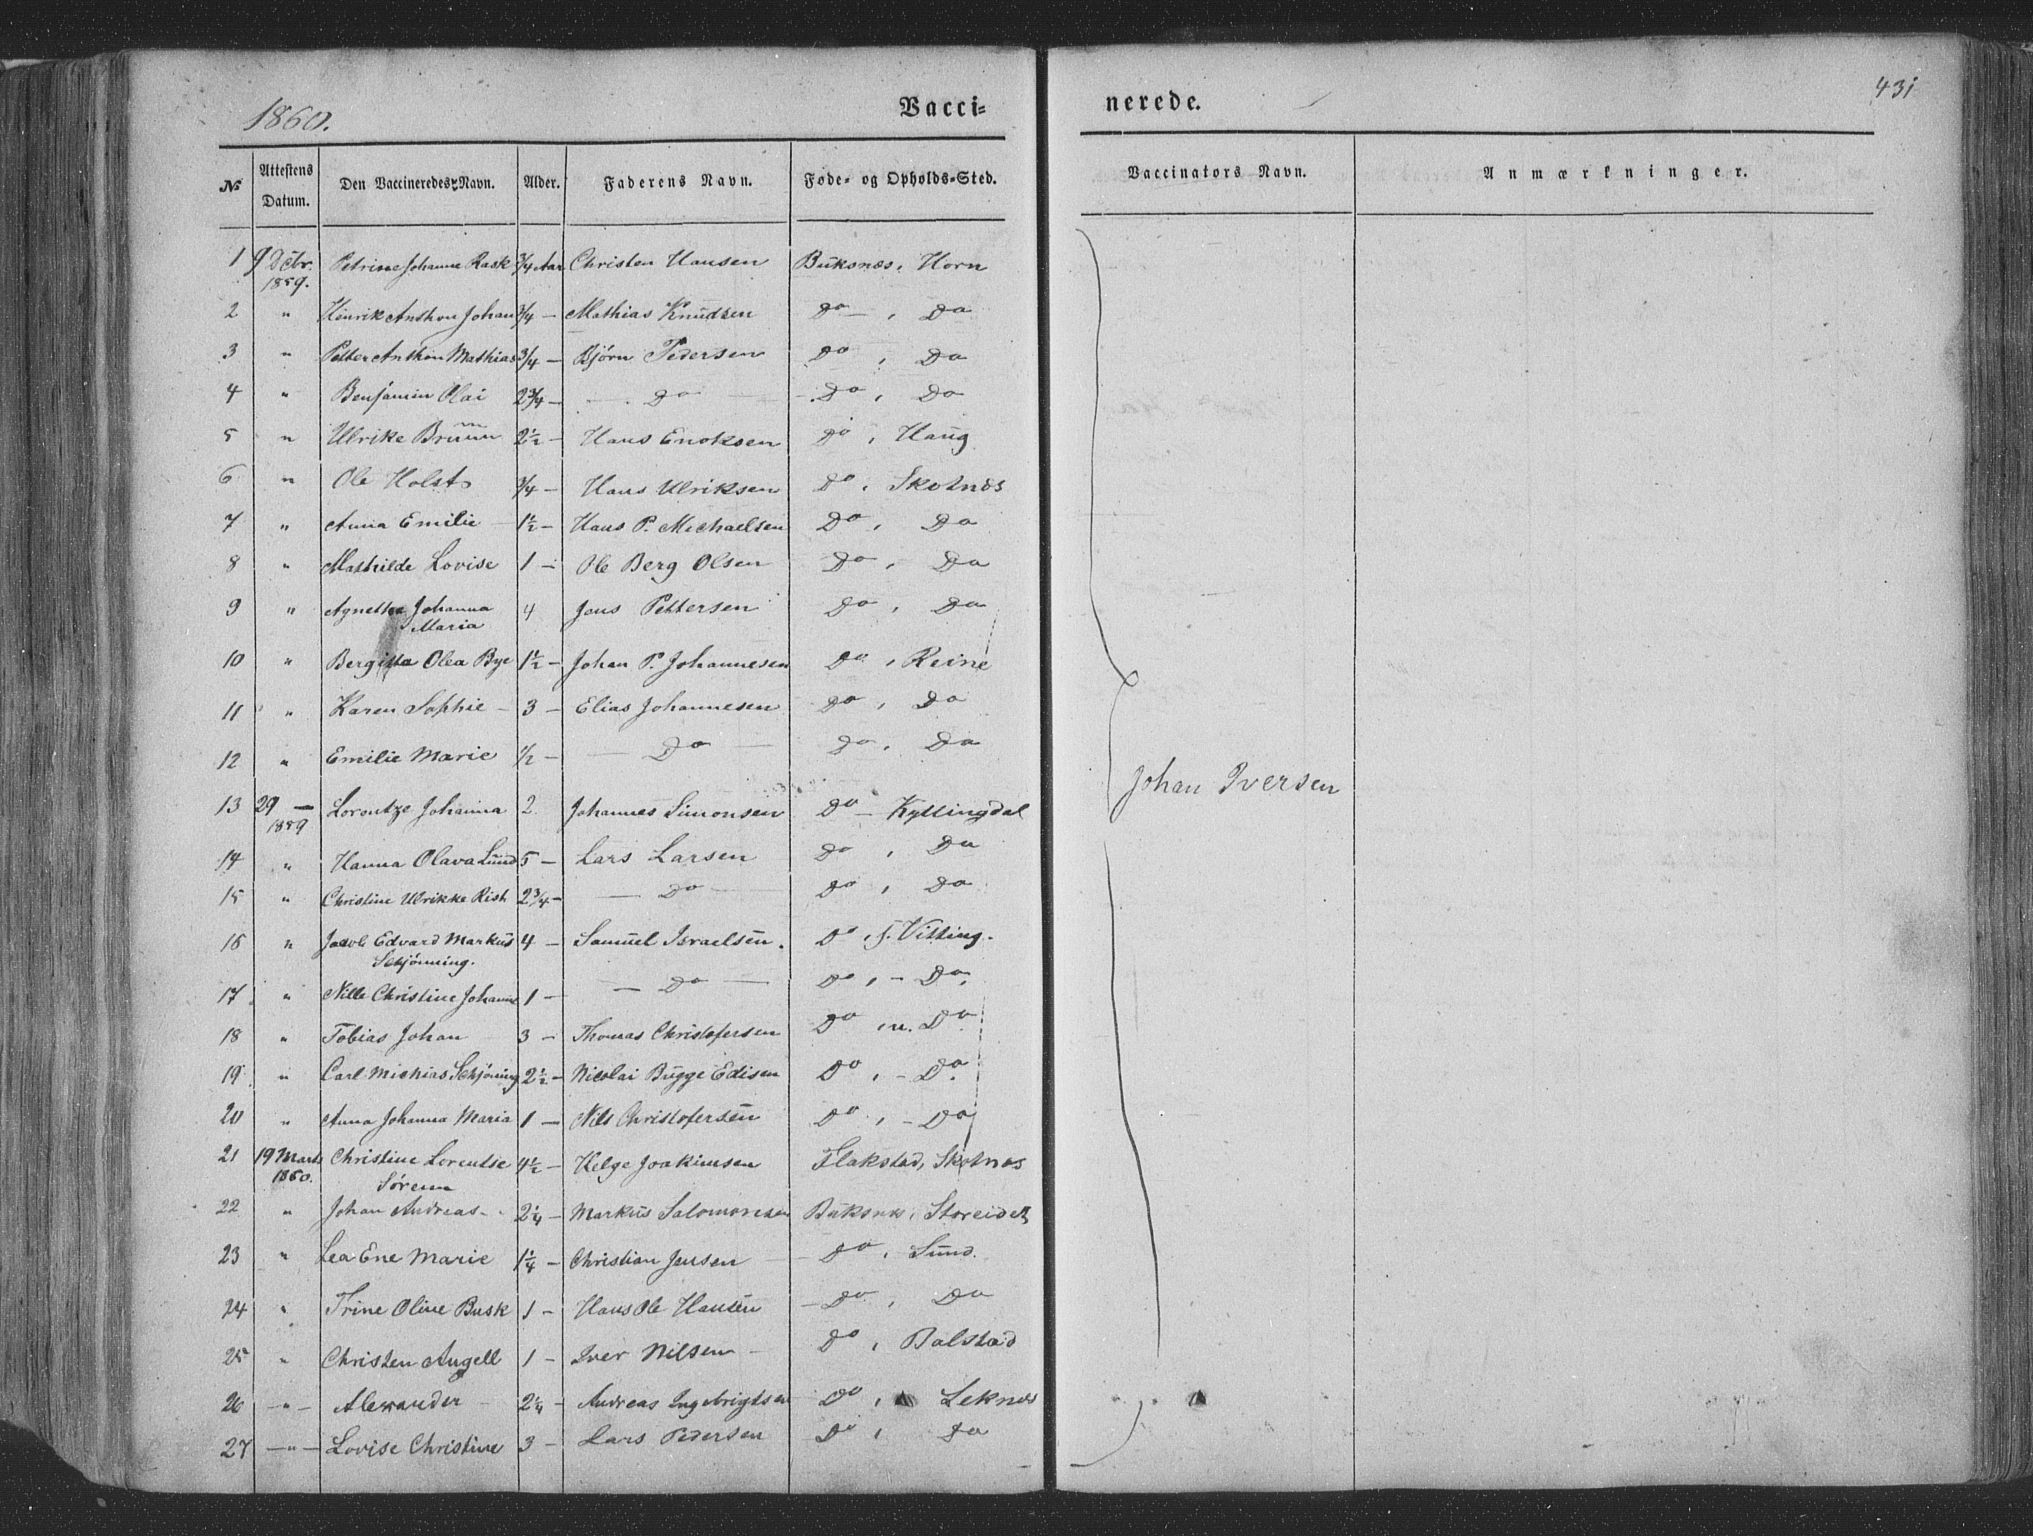 1860.
Vacci-
nerede.
431
№ Attestens Datum. Den Vaccineredes Navn. Alder. Faderens Navn. Føde- og Opholds-Sted. Vaccinators Navn. Anmærkninger.
1 9 Octbr. 1859. Petrine Johanne Rask 3/4 Aar Christen Hansen Buksnes, Horn
2 " Henrik Anthon Johan 3/4 – Mathias Knudsen Do – , Do
3 " Petter Anthon Mathias 3/4 – Bjørn Pedersen Do , Do
4 " Benjamin Olai 2 3/4 – – Do – Do , Do
5 " Ulrike Bruun 2 1/2 – Hans Enoksen Do , Haug
6 " Ole Holst 3/4 – Hans Ulriksen Do , Skotnes
7 " Anna Emilie 1 1/2 – Hans P. Michaelsen Do , Do
8 " Mathilde Lovise 1 – Ole Berg Olsen Do , Do
9 " Agnetha Johanna Maria 4 Jens Pettersen Do , Do
10 " Bergitta Olea Bye 1 1/2 – Johan P. Johannesen Do , Reine
11 " Karen Sophie – 3 – Elias Johannesen Do , Do
12 " Emilie Marie 1/2 – – Do – Do , Do
13 29 – 1859 Lorentze Johanna 2 Johannes Simonsen Do – Kyllingdal
14 " Hanna Olava Lund 5 – Lars Larsen Do , Do
15 " Christine Ulrikke Rist 2 3/4 – – Do – Do , Do
16 " Jacob Edvard Markus Schjönning. 4 – Samuel Israelsen. Do , S. Vitting.
17 " Nille Christine Johanne 1 – – Do – Do , – Do,
18 " Tobias Johan 3 – Thomas Christofersen Do , n. Do
19 " Carl Michias Schjöning 2 1/2 – Nicolai Bugge Edisen Do , – Do
20 " Anna Johanna Maria 1 – Nils Christofersen Do , – Do
21 19 Marts 1860. Christine Lorentse Sörene 4 1/2 – Helge Joakimsen Flakstad, Skotnes
22 " Johan Andreas – 2 1/4 – Markus Salomonsen Buksnes, Storeidet
23 " Lea Ene Marie 1 1/4 – Christian Jensen Do , Sund.
24 " Trine Oline Busk 1 – Hans Ole Hansen – Do , Do
25 " Christen Angell 1 – Iver Nilsen – Do , Balstad
26 – " – Alexander 2 1/4 – Andreas Ingebrigtsen Do , Leknes
27 – " – Lovise Christine 3 – Lars Pedersen Do , Do
Johan Iversen